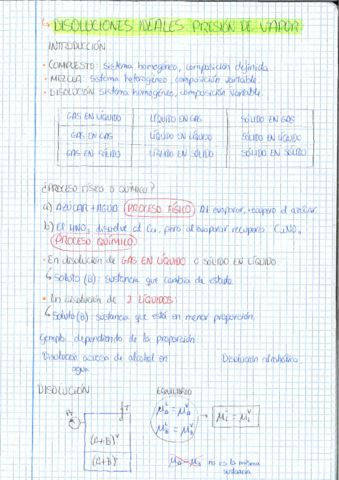 DISOLUCIONES IDEALES. PRESIÓN DE VAPOR.
INTRODUCCIÓN
• COMPUESTO: sistema homogéneo, composición definida.
• MEZCLA: sistema heterogéneo, composición variable.
• DISOLUCIÓN: sistema homogéneo, composición variable.
GAS EN LÍQUIDO LÍQUIDO EN GAS SÓLIDO EN GAS
GAS EN GAS LÍQUIDO EN LÍQUIDO SÓLIDO EN LÍQUIDO
GAS EN SÓLIDO LÍQUIDO EN SÓLIDO SÓLIDO EN SÓLIDO
¿PROCESO FÍSICO O QUÍMICO?
a) AZÚCAR + AGUA PROCESO FÍSICO Al evaporar, recupero el azúcar.
b) El HNO3 disuelve al Cu, pero al evaporar recupero CuNO3
PROCESO QUÍMICO
• En disolución de GAS EN LÍQUIDO o SÓLIDO EN LÍQUIDO
↳ Soluto (B): sustancia que cambia de estado.
• En disolución de 2 LÍQUIDOS:
↳ Soluto (B): sustancia que está en menor proporción.
Ejemplo: dependiendo de la proporción:
Disolución acuosa de alcohol en agua Disolución alcohólica
DISOLUCIÓN EQUILIBRIO
T
(A+B)ᵛ
(A+B)ᴸ
μAᴸ = μAᵛ
μBᴸ = μBᵛ
→ μiᴸ = μiᵛ
μA = μB no es la misma sustancia